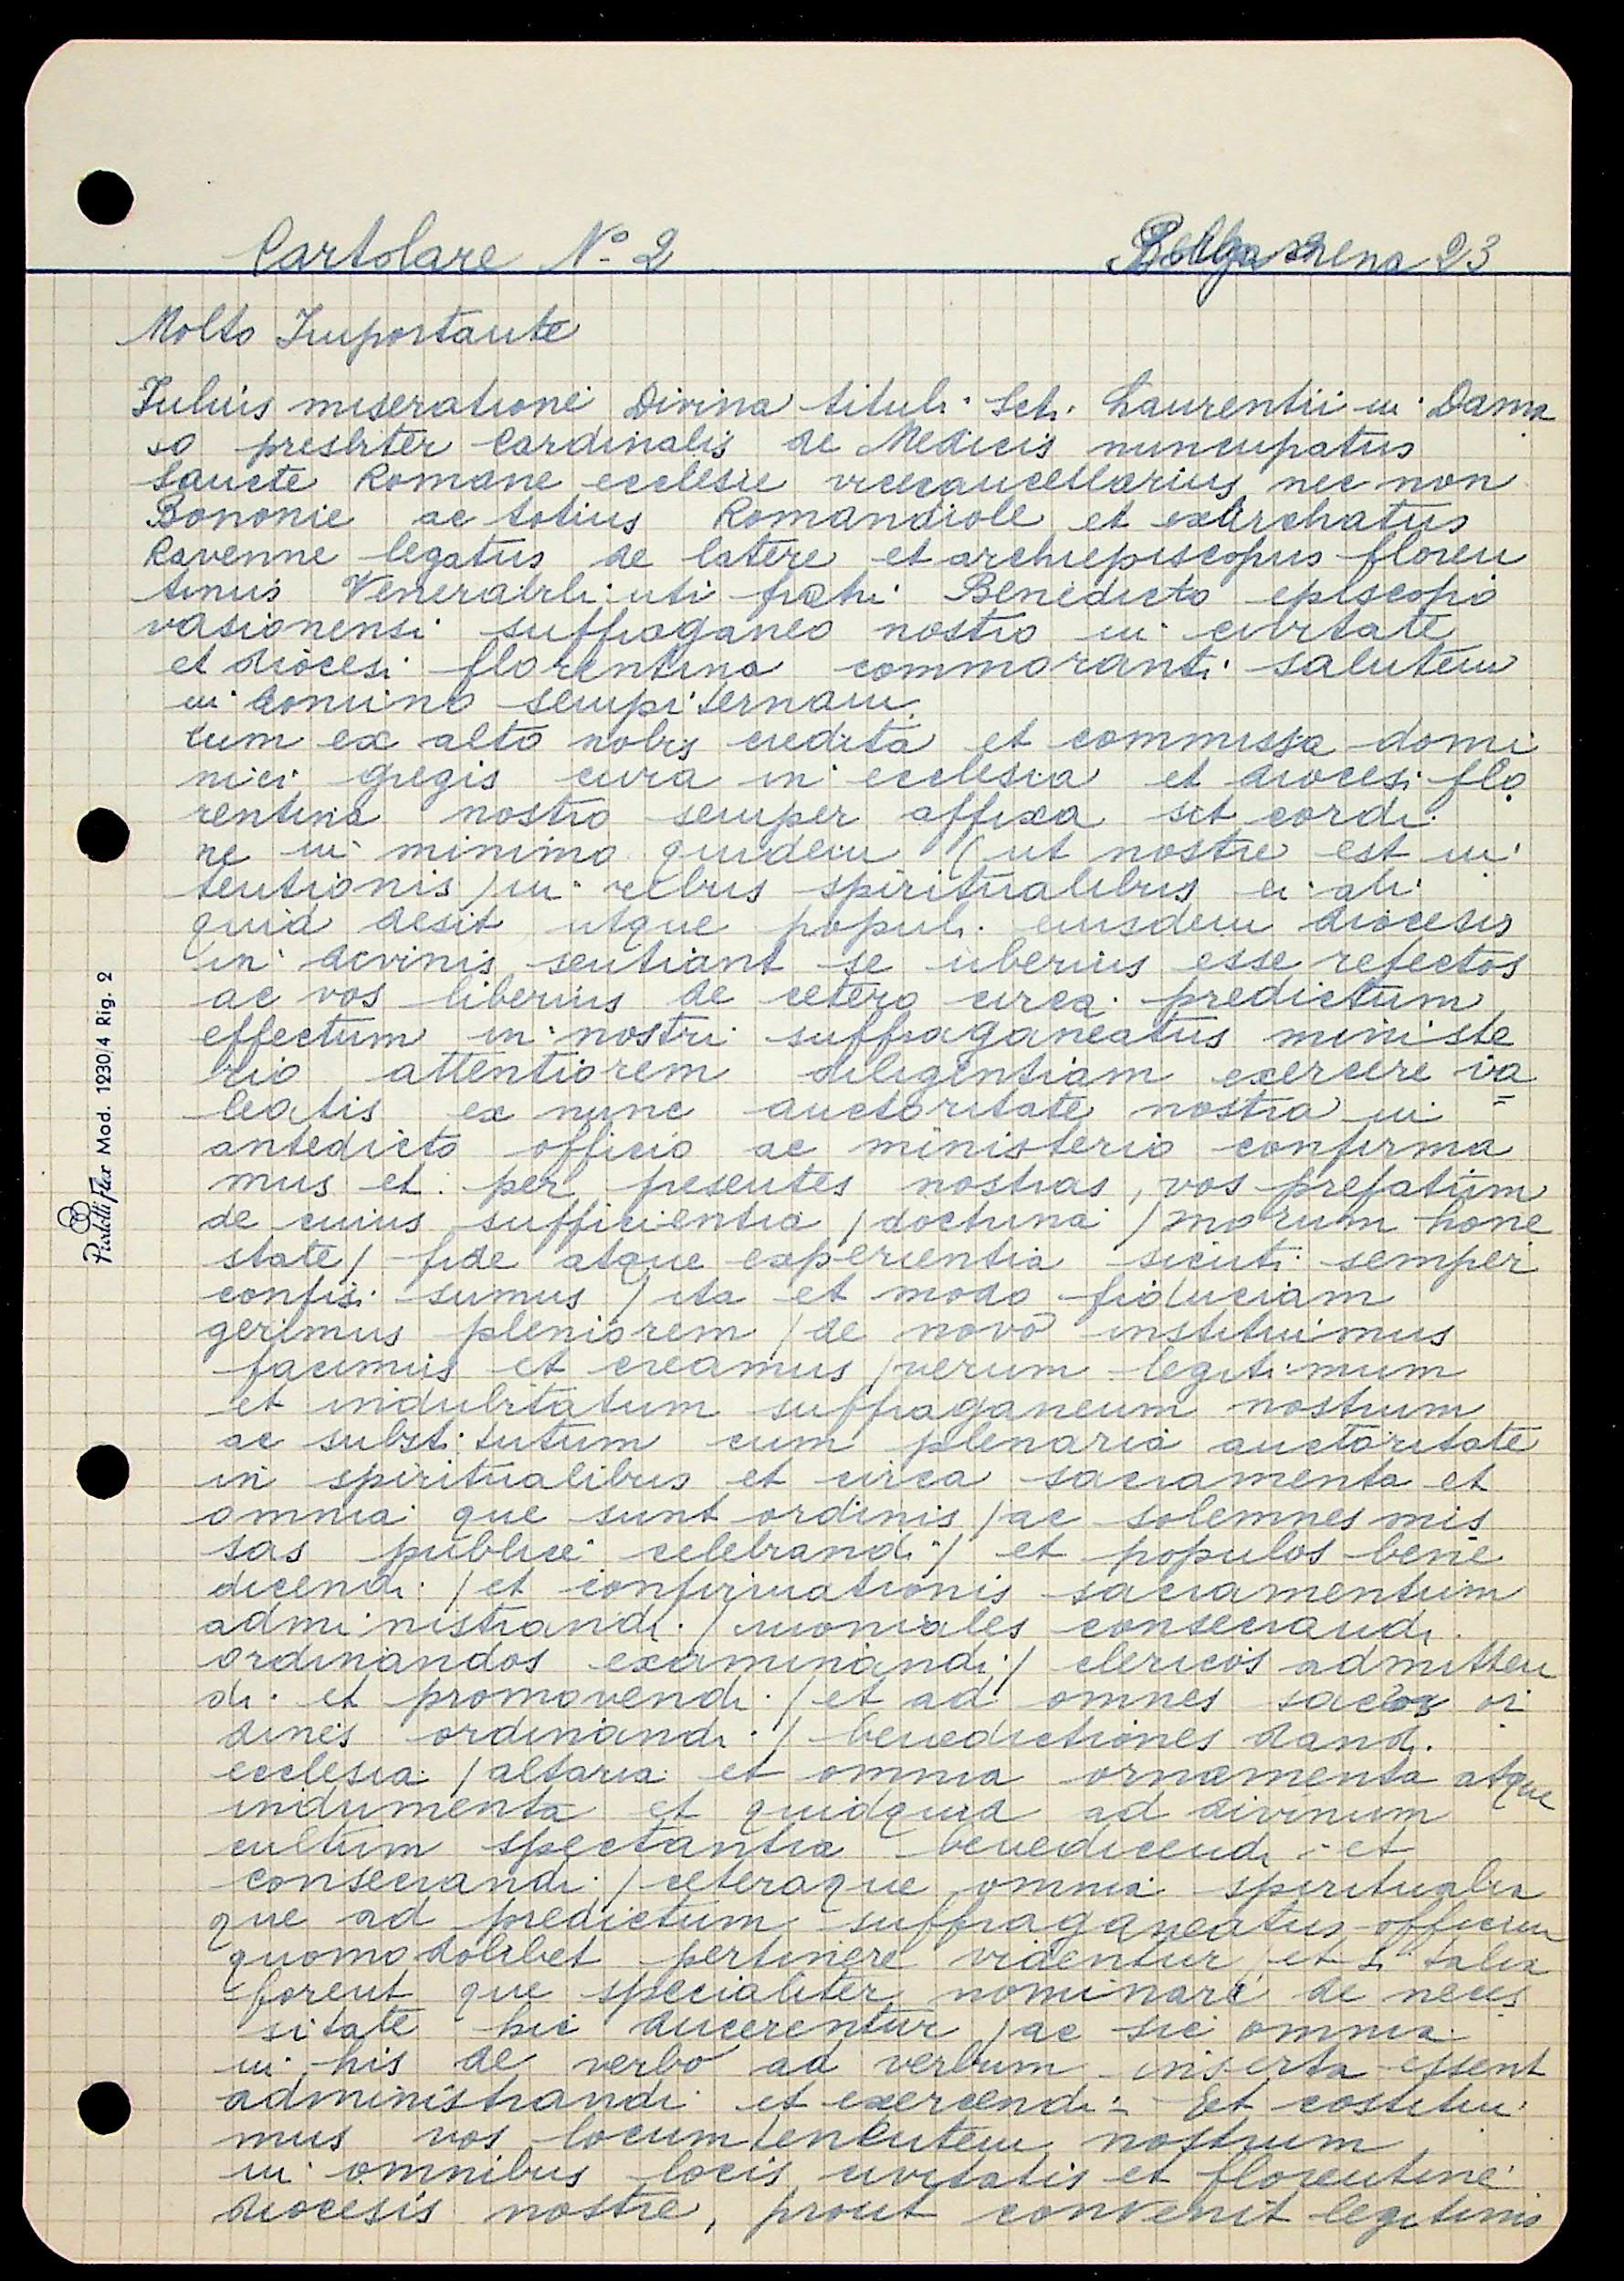 Cartolare No 2
23
Molto Importante
Iulius miseratione Divina tituli Scti. Laurentii in Dama
so presbiter Cardinalis de Medicis nuncupatus
Sancte Romane ecclesie vicecancellarius nec non
Bononie ac totius Romandiole et exarchatus
Ravenne legatus de latere et archiepiscopus floren
tinus Venerabili uti fratri Benedicto episcopo
vasionensi suffraganeo nostro in civitate
et diocesi florentina commoranti salutem
in domino sempiternam.
Cum ex alto nobis credita et commissa domi
nici gregis cura in ecclesia et diocesi flo
rentina nostro semper affixa sit cordi.
ne in minimo quidem (ut nostre est in
tentionis) in rebus spiritualibus ei ali
quid desit, utque populi eiusdem diocesis
in divinis sentiant se uberius esse refectos
ac vos liberius de cetero circa predictum
effectum in nostri suffraganeatus ministe
rio attentiorem diligentiam exercere va
leatis ex nunc auctoritate nostra in
antedicto officio ac ministerio confirma
mus et per presentes nostras, vos prefatum
de cuius sufficientia / doctrina / morum hone
state / fide atque experientia sicuti semper
confisi sumus / ita et modo fiduciam
gerimus pleniorem / de novo instituimus
facimus et creamus / verum legitimum
et indubitatum suffraganeum nostrum
ac substitutum cum plenaria auctoritate
in spiritualibus et circa sacramenta et
omnia que sunt ordinis / ac solemnes mis
sas publice celebrandi / et populos bene
dicendi / et confirmationis sacramentum
administrandi / moniales consecrandi
ordinandos examinandi / clericos admitten
di et promovendi / et ad omnes sacros or
dines ordinandi / benedictiones dandi.
ecclesia / altaria et omnia ornamenta atque
indumenta et quidquid ad divinum
cultum spectantia benedicendi et
consecrandi / ceteraque omnia spiritualia
que ad predictum suffraganeatus officium
quomodolibet pertinere videntur, et si talia
forent que specialiter nominari de neces
sitate hic ducerentur / ac sic omnia
in his de verbo ad verbum inserta essent
administrandi et exercendi - Et costitui
mus vos locumtenentem nostrum,
in omnibus locis civitatis et florentine
diocesis nostre, prout convenit legitimis
Pirletti Flex Mod. 1230/4 Rig. 2